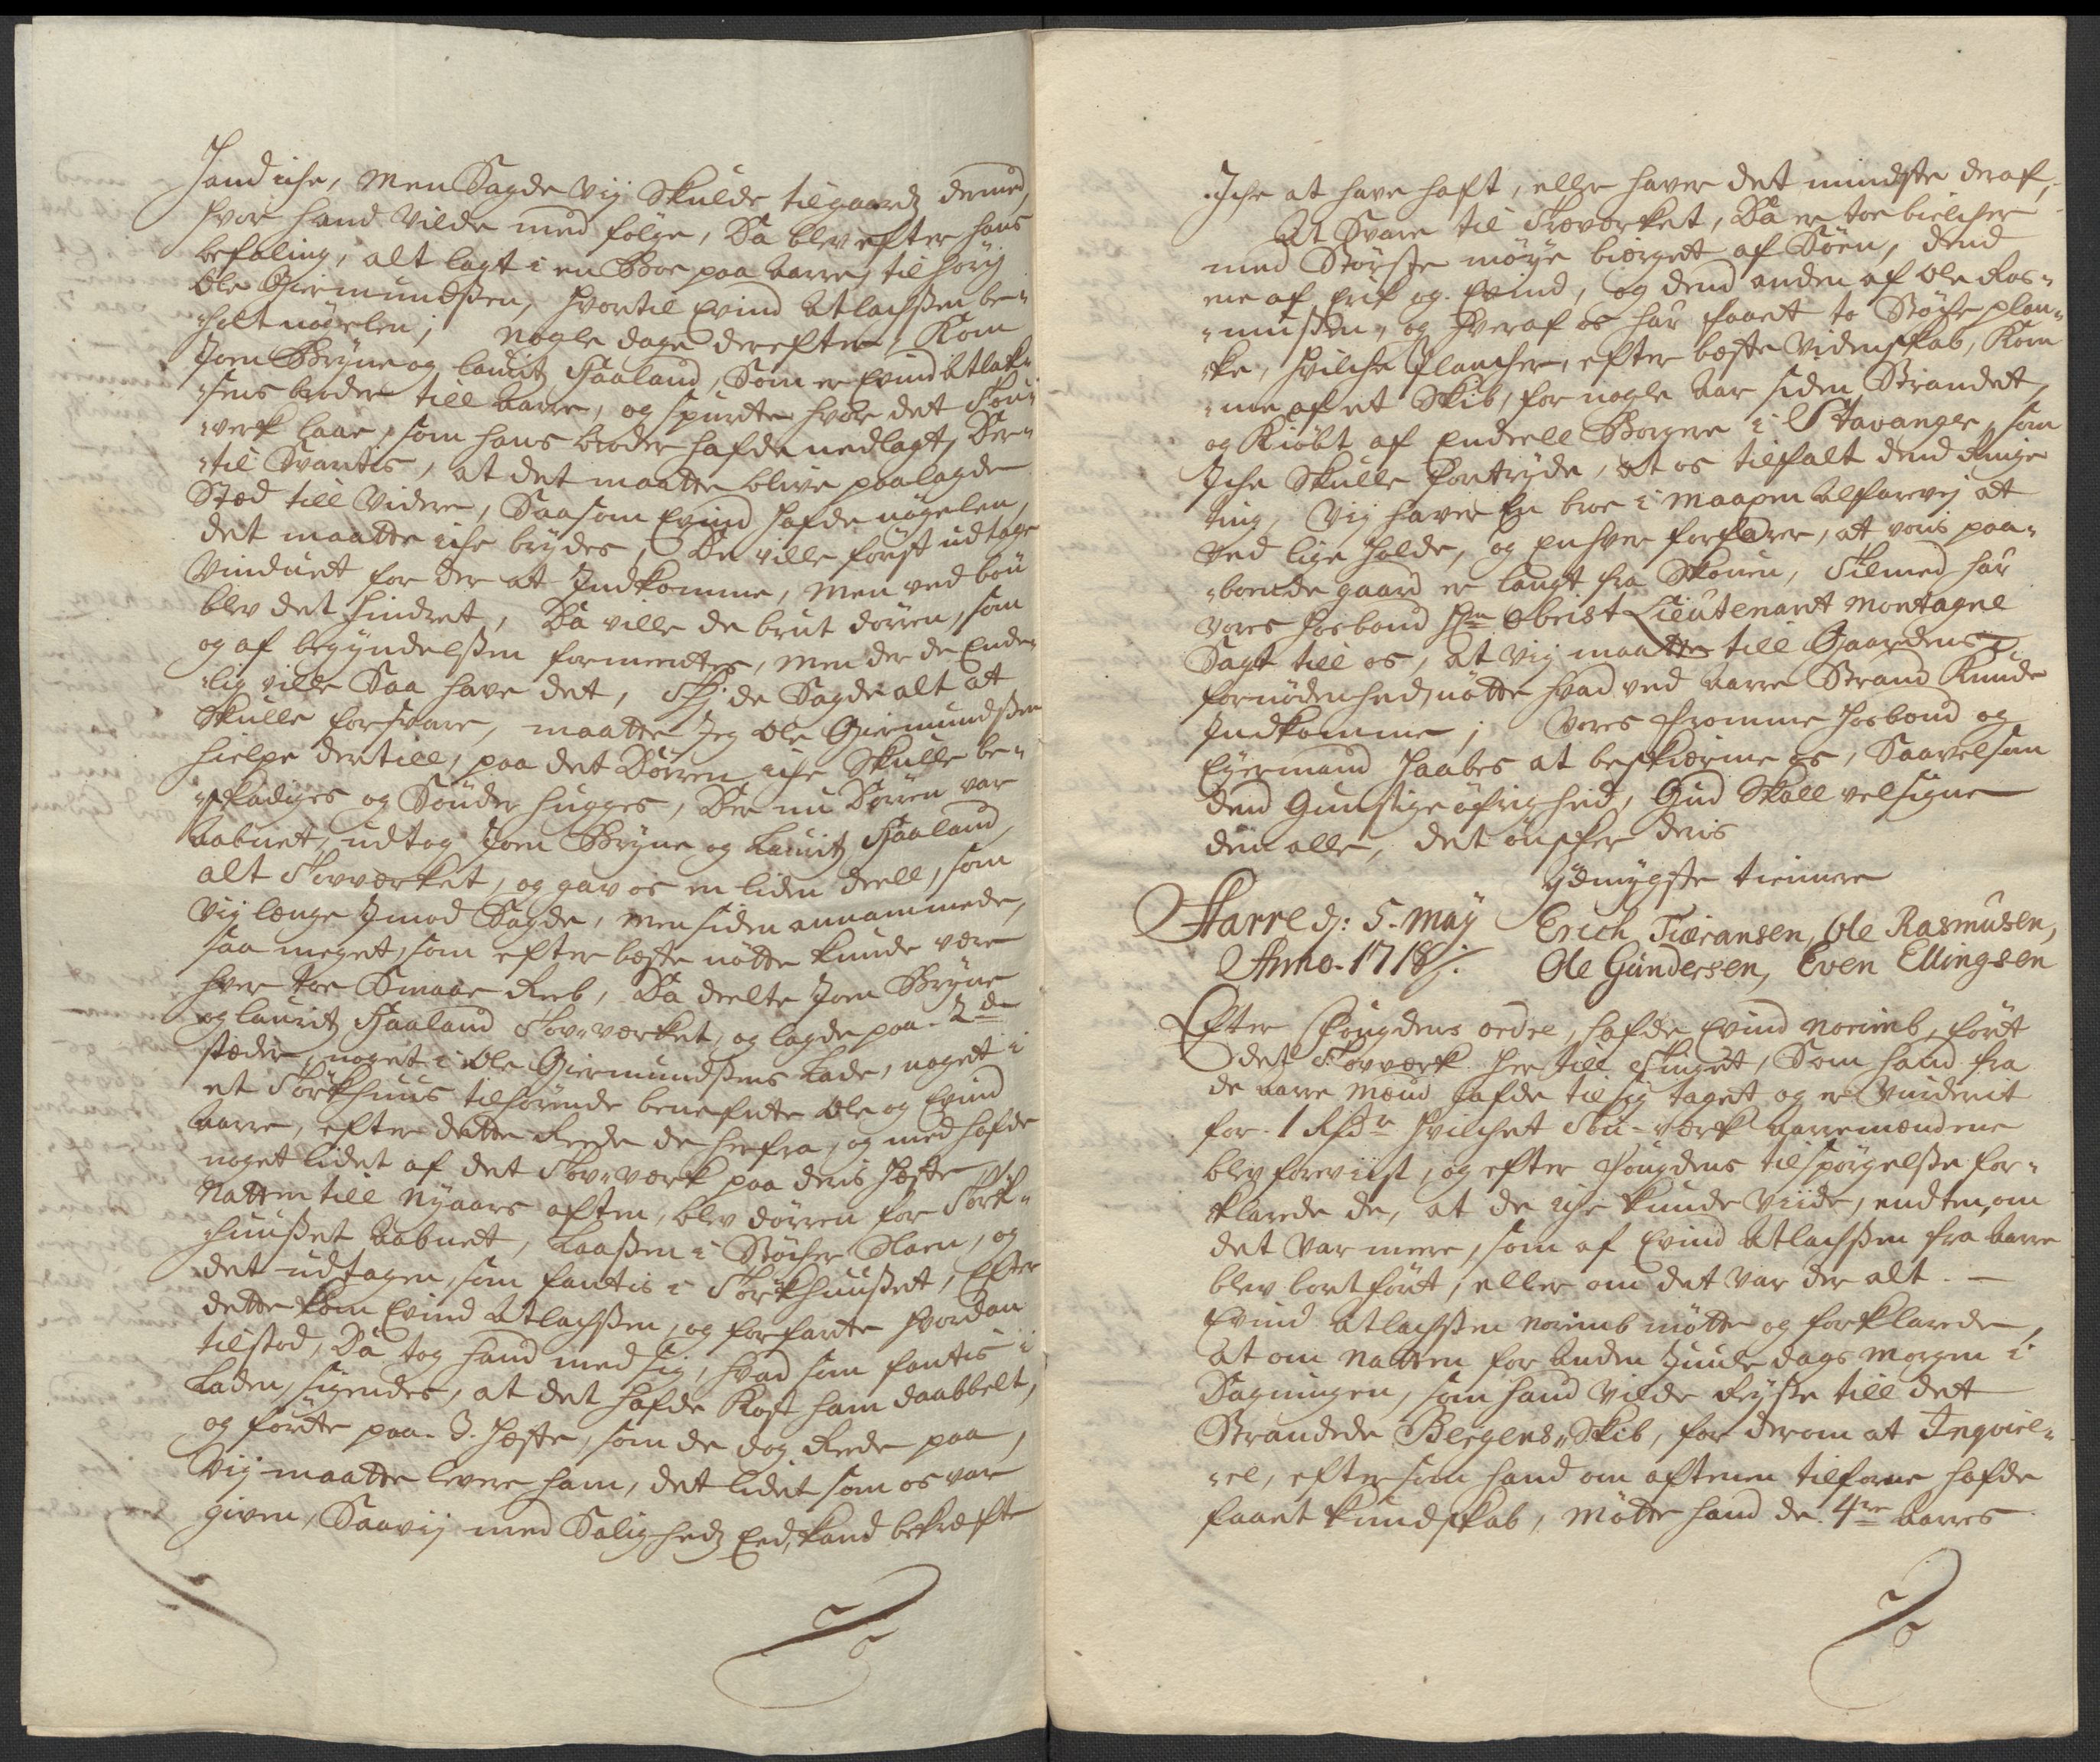 hand iche, men Sagde Vij Skulde tilgaards dermed,
hvor hand Vilde med følge, Da blev efter hans
befaling, alt lagt i en Boe paa Aarre, tilhørig
Ole Giermundssen, hvortil Evind Atlachssen be-
holt nøgelen; Nogle dage derefter, Kom
Joen Bryne og Lauritz Haaland, Som er Evind Atlak-
sens broder till Aarre, og spurte hvor det Tou-
verk laae, som hans broder hafde nedlagt, Der-
til Svartes, at det maatte blive paa lagde
Stæd till Videre, Saasom Evind hafde nøgelen,
det maatte iche brydes, De ville først udtage
Vinduet for der at Indkomme, men ved bøn
blev det hindret, Da ville de brut dørren, som
og af begyndelssen formentes, men der de Ende-
lig ville Saa have det, Thj de Sagde alt at
Skulle forsvare, maatte Jeg Ole Giermundssen
hielpe dertill, paa det Dørren iche Skulle be-
skadiges og Sønder hugges, Der nu Dørren var
aabnet, udtog Joen Bryne og Lauritz Haaland,
alt Tovværket, og gav os en liden deell, som
Vij længe Imod Sagde, men siden annammede,
saa meget, som efter beste nøtte kunde være
hver toe Smaae Reeb, Da deelte Joen Bryne
og Lauritz Haaland Tov-værket, og lagde paa 2de
stæder, noget i Ole Giermundssens Lade, noget i
et Tørkhuus tilhørende benefnte Ole og Evind
Aarre, efter dette Reede de herfra, og med hafde
noget lidet af det Tov-værk paa deris Heste,
Natten till Nyaars aften, blev dørren for Tørk-
huusset Aabnet, Laassen i Støcher Slaen, og
det udtagen, som fantis i Tørkhuusset, Efter
dette Kom Evind Atlachssen, og forfarte hvordan
tilstod, Da tog hand med sig, hvad som fantis i
Laden, sigendes, at det hafde Kost ham daabbelt,
og førte paa 3. heste, som de dog Rede paa,
Vij maatte levere ham, det lidet som os var
given, Saa vij med Saligheds Eed, kand bekræfte
Iche at have haft, eller haver det mindste deraf,
At Svare til Træværket, Da er toe bielcher
med Største møye biærget af Søen, dend
ene af Erik og Evind, og dend anden af Ole Ras-
mussen, og hver af os har faaet to Støche plan-
ke, hvilche Plancher, efter beste Videnskab, Kom-
me af et Skib, for nogle Aar siden Strandet,
og Kiøbt af Endeell Borgere i Stavanger, som
Iche Skulle fortryde, at os tilfalt dend Ringe
ting, Vij haver En broe i maapen Alfarevej at
Ved lige holde, og enhver forfarer, at voris paa-
boende gaard er langt fra Skouen, Tilmed har
vores Hosbond Hr: Obrist Lieutenant Montagne
Sagt till os, at Vij maatte till Gaardens
fornødenhed nøtte hvad ved Aarre Strand Kunde
Indkomme; Vores fromme Hosbond og
Eyermand haabes at beskierme os, Saavelsom
dend Gunstige øfrighed, Gud Skall velsigne
dem alle, det ønsker deris
ydmygste tienere
Aarre dj: 5. May Erich Tiøransen, Ole Rasmusen,
Anno. 1718/. Ole Gundersen, Even Ellingsen
Efter Fougdens ordre, hafde Evind Norimb, ført
det Tovværk her till Tinget, Som hand fra
de Aarre Mænd hafde til sig taget, og er Vurderit
for 1 Rixdr hvilchet Tou-værk Aarremændene
blev foreviist, og efter Fougdens tilspørgelsse for-
klarede de, at de iche kunde viide, endten, om
det var mere, som af Evind Atlachssen fra Aarre
blev bortført, eller om det var der alt. —
Evind Atlachssen Norimb møtte og forklarede,
at om Natten for Anden Juule dags Morgen i
Dagningen, som hand vilde Reysse till det
Strandede Bergens Skib, for derom at Inqvire-
re, eftersom hand om aftenen tilforne hafde
faaet kundskab, møtte hand de 4re Aarres